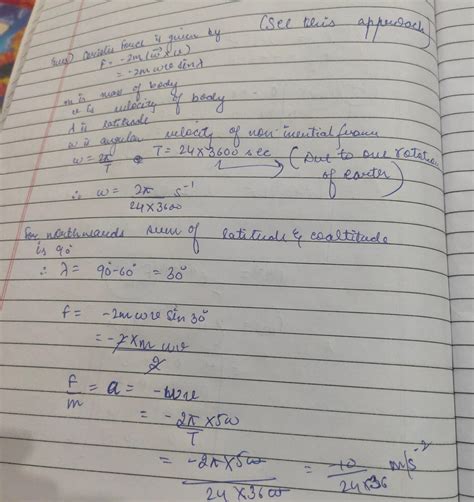 (See this approach)
Coriolis force is given by
F = -2m(ω⃗ × v)
= -2mωv sinλ
m is mass of body
v is velocity of body
λ is latitude
ω is angular velocity of non-inertial frame
ω = 2π/T T = 24×3600 sec (Due to one rotation of earth)
∴ ω = 2π/24×3600 s⁻¹
For northwards sum of latitude & coaltitude
is 90°
∴ λ = 90°-60° = 30°
f = -2mωv sin 30°
= -2×mωv/2
F/m = a = -ωv
= -2π/T ×500
= -2π×500/24×3600 = -10/24×36 m/s⁻²